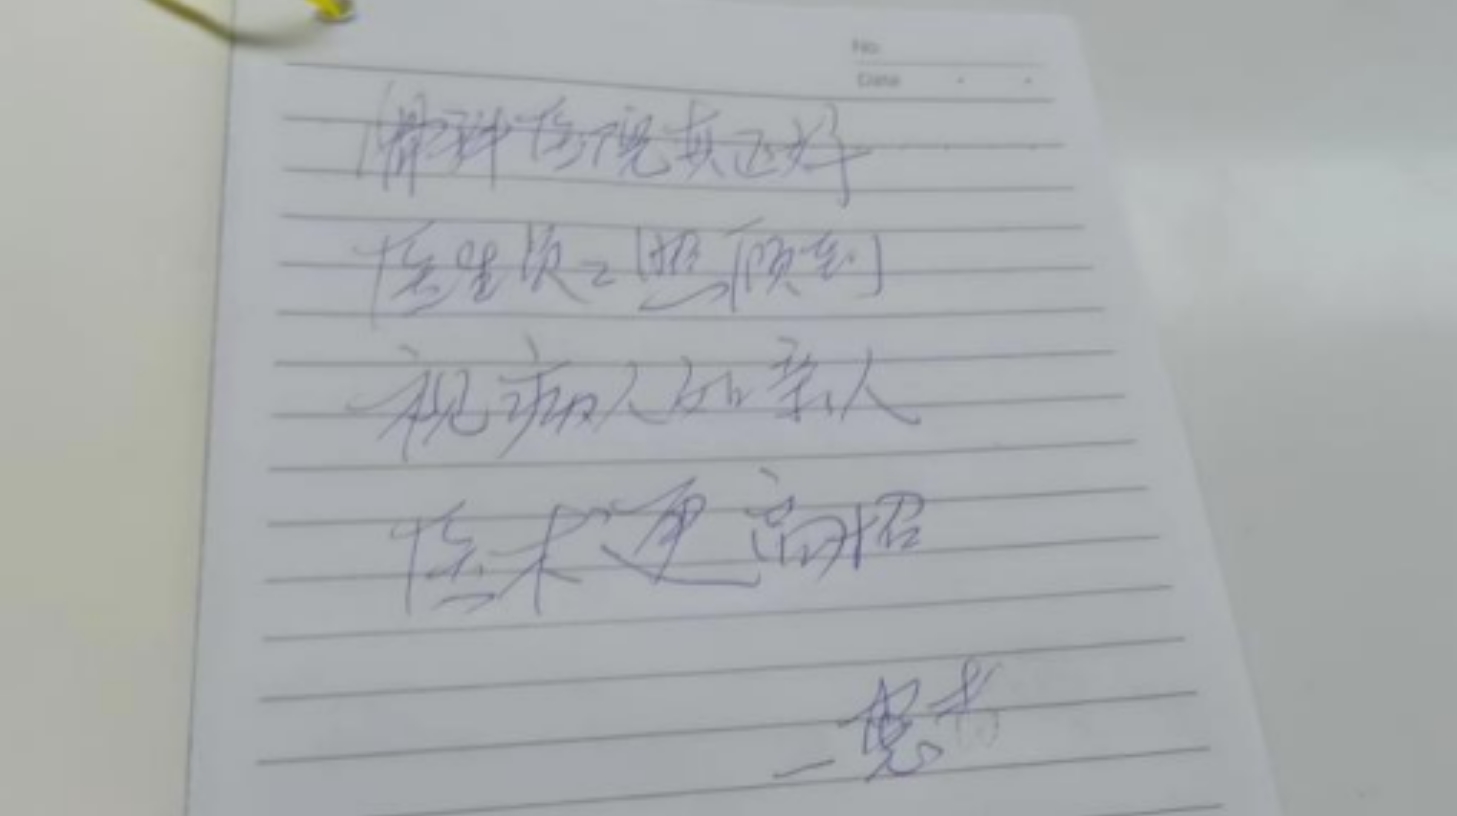 No.
Date
骨科医院真正好
医生员二照顾到
视病人如亲人
医术更高招
一患者